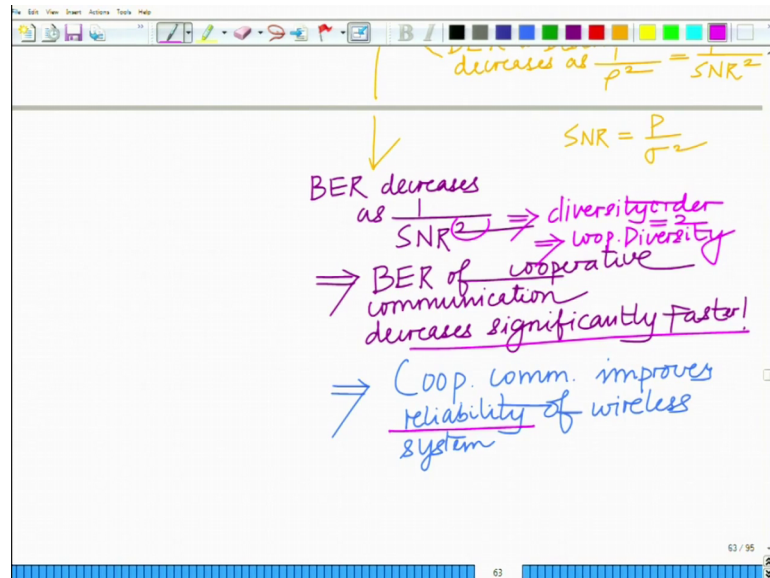 File Edit View Insert Actions Tools Help
B I
decreases as 1/P² = 1/SNR²
SNR = P/σ²
BER decreases
as 1/SNR² ⇒ diversity order = 2
⇒ Coop. Diversity
⇒ BER of cooperative
communication
decreases significantly Faster!
⇒ Coop. comm. improves
reliability of wireless
system
63 / 95
63